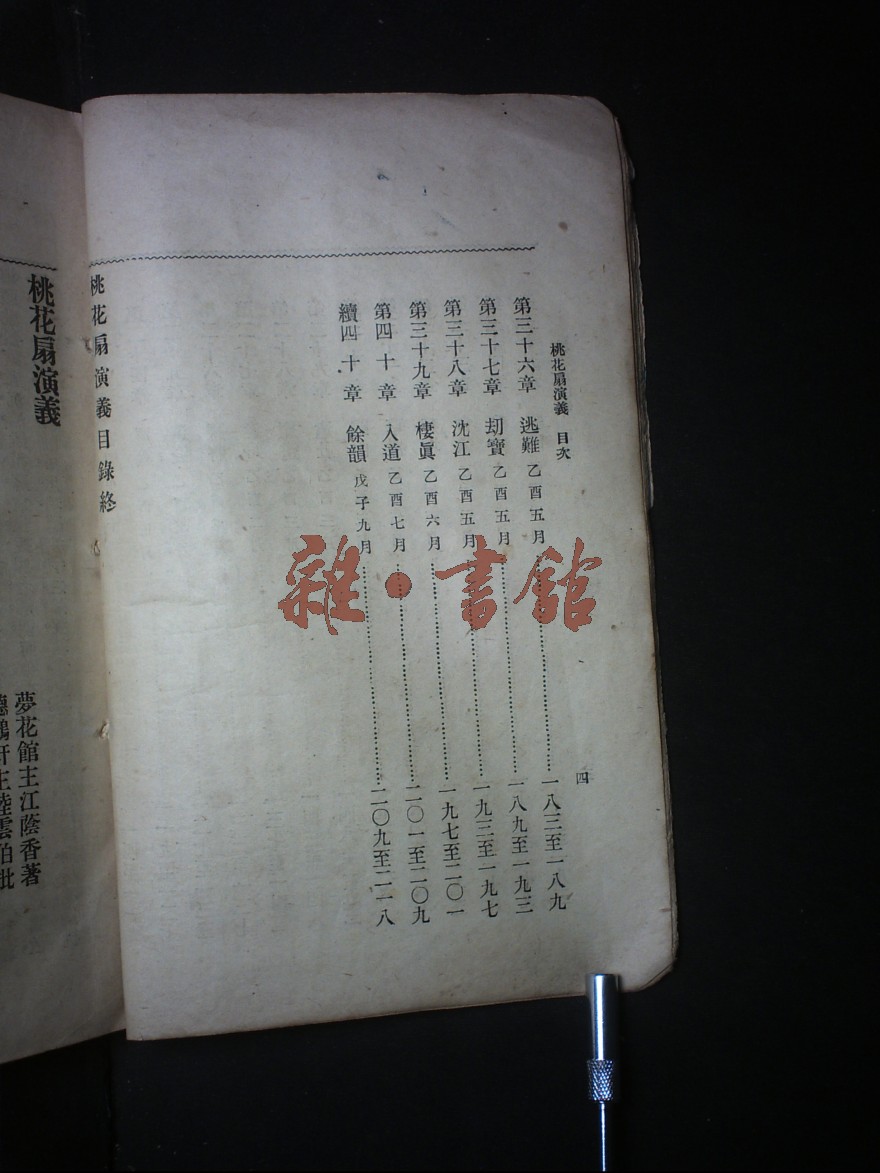 桃花扇演義 目次 四
第三十六章 逃難 乙酉五月……一八三至一八九
第三十七章 刧寶 乙酉五月……一八九至一九三
第三十八章 沈江 乙酉五月……一九三至一九七
第三十九章 棲眞 乙酉六月……一九七至二〇一
第四十章 入道 乙酉七月……二〇一至二〇九
續四十章 餘韻 戊子九月……二〇九至二一八
桃花扇演義目錄終
桃花扇演義
夢花館主江蔭香著
軒主陸雲伯批
雜·書館